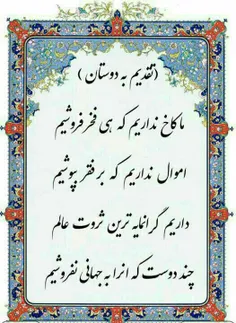 (تقدیم به دوستان)
ما کاخ نداریم که هی فخر فروشیم
اموال نداریم که بر فقر بپوشیم
داریم گرانمایه ترین ثروت عالم
چند دوست که انرا به جهانی نفروشیم